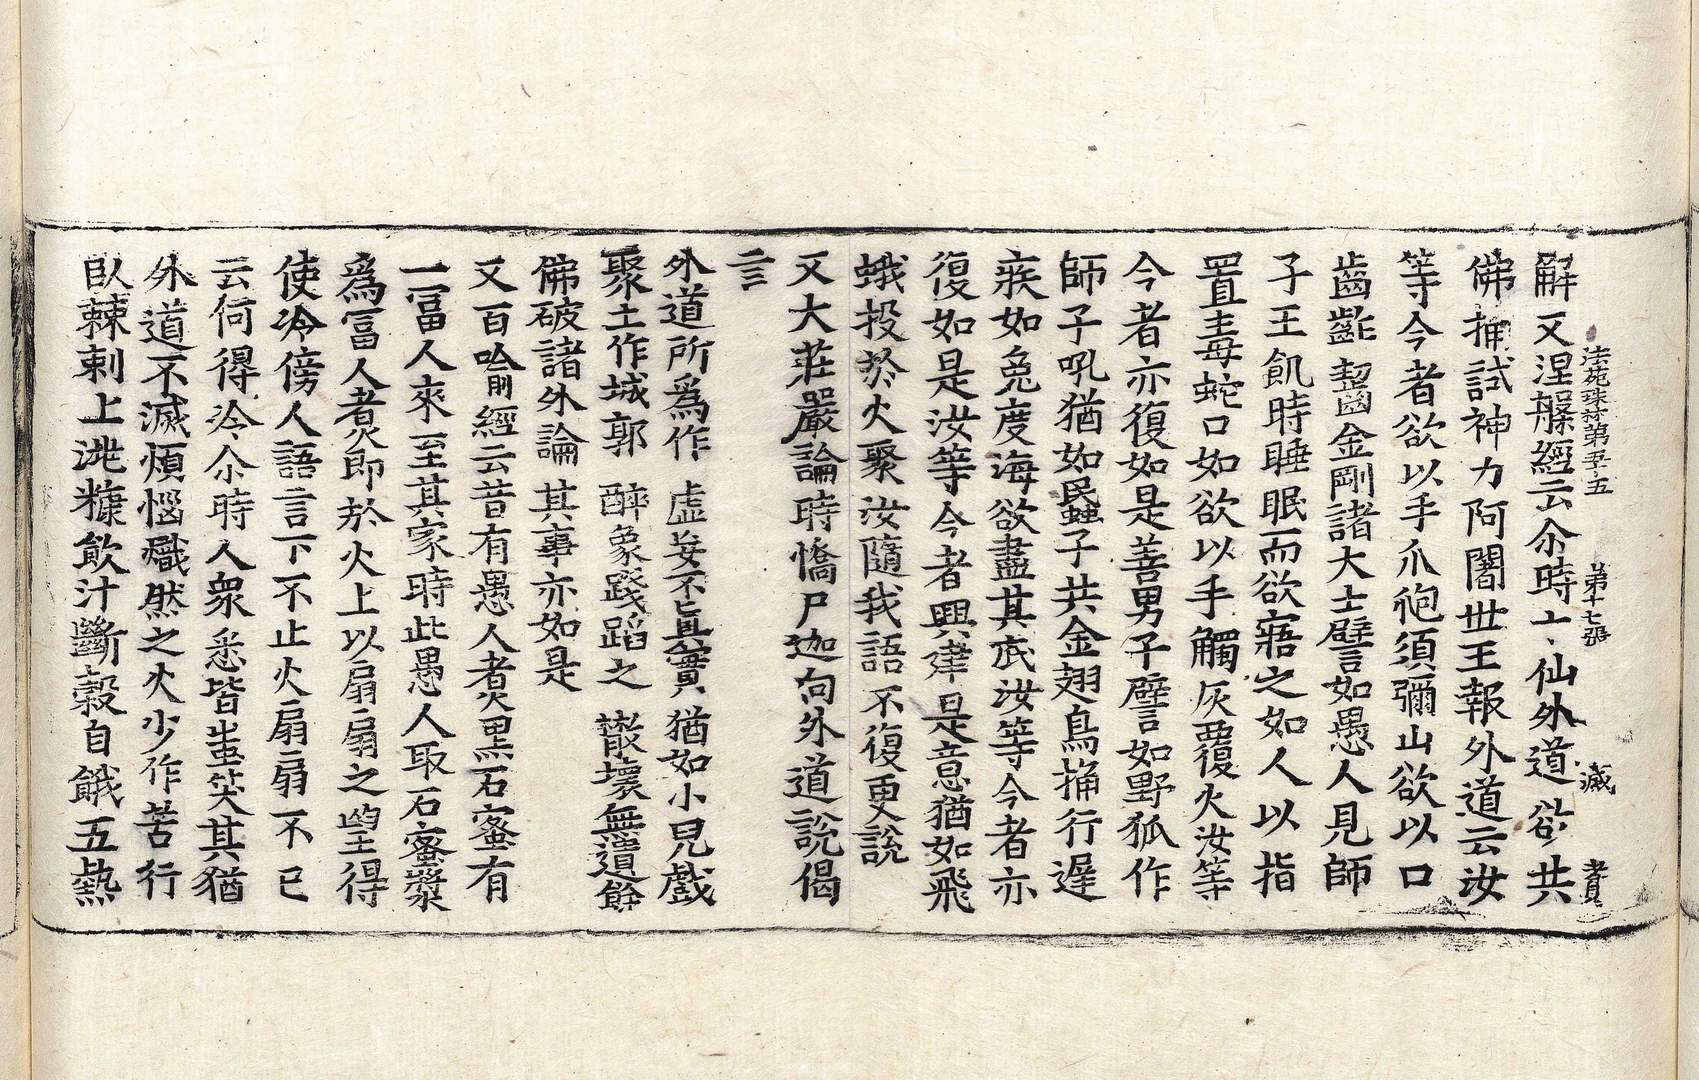 法苑珠林第五十五 第十七張 滅
解又涅槃經云尒時亠、仙外道欲共
佛捔試神力阿闍世王報外道云汝
等今者欲以手爪鉋須彌山欲以口
齒齜齧金剛諸大士譬言如愚人見師
子王飢時睡眠而欲寤之如人以指
置毒蛇口如欲以手觸灰覆火汝等
今者亦復如是善男子譬如野狐作
師子吼猶如蟁子共金翅鳥捔行遲
疾如兔度海欲盡其底汝等今者亦
復如是汝等今者興建是意猶如飛
蛾投於火聚汝隨我語不復更說
又大莊嚴論時憍尸迦向外道說偈
言
外道所為作 虛妄不真實 猶如小兒戲
聚土作城郭 醉象踐蹈之 散壞無遺餘
佛破諸外論 其事亦如是
又百喻經云昔有愚人煮黑石蜜有
一富人來至其家時此愚人取石蜜漿
為富人煮即於火上以扇扇之望得
使冷傍人語言下不止火扇扇不已
云何得冷尒時人衆悉皆蚩笑其猶
外道不滅煩惱熾然之火少作苦行
臥棘刺上洮糠飲汁斷穀自餓五熱